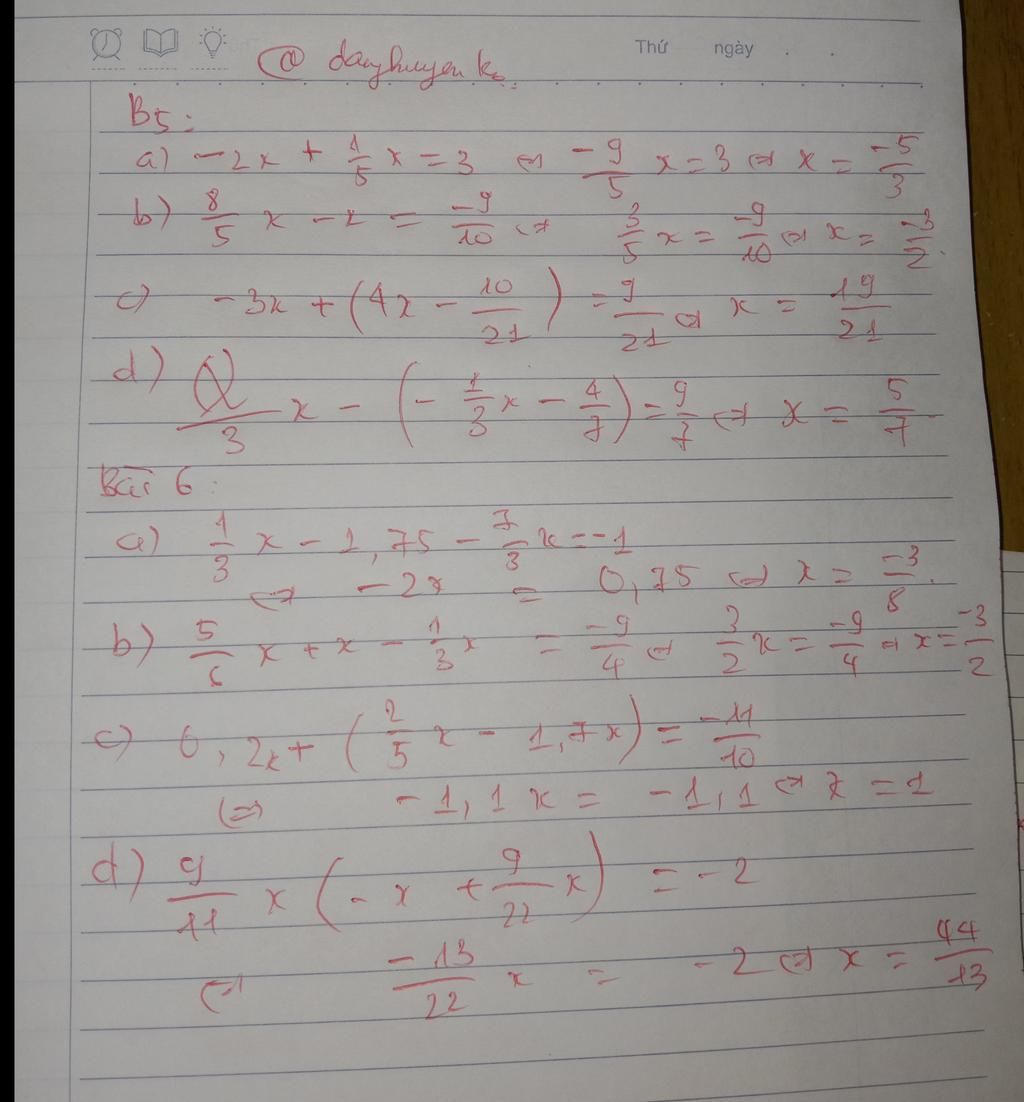 Thứ ngày . .
@ dayhuyenk
B5:
a) -2x + 1/5 x = 3 ⇔ -9/5 x = 3 ⇔ x = -5/3
b) 8/5 x - x = -9/10 ⇔ 3/5 x = -9/10 ⇔ x = -3/2.
c) -3x + (4x - 10/21) = 9/21 ⇔ x = 19/21
d) 2/3 x - (-1/3 x - 4/7) = 9/7 ⇔ x = 5/7
Bài 6:
a) 1/3 x - 1,75 - 7/3 x = -1
⇔ -2x = 0,75 ⇔ x = -3/8.
b) 5/6 x + x - 1/3 x = -9/4 ⇔ 3/2 x = -9/4 ⇔ x = -3/2
c) 0,2x + (2/5 x - 1,7x) = -11/10
⇔ -1,1x = -1,1 ⇔ x = 1
d) 9/11 x (-x + 9/22 x) = -2
⇔ -13/22 x = -2 ⇔ x = 44/13